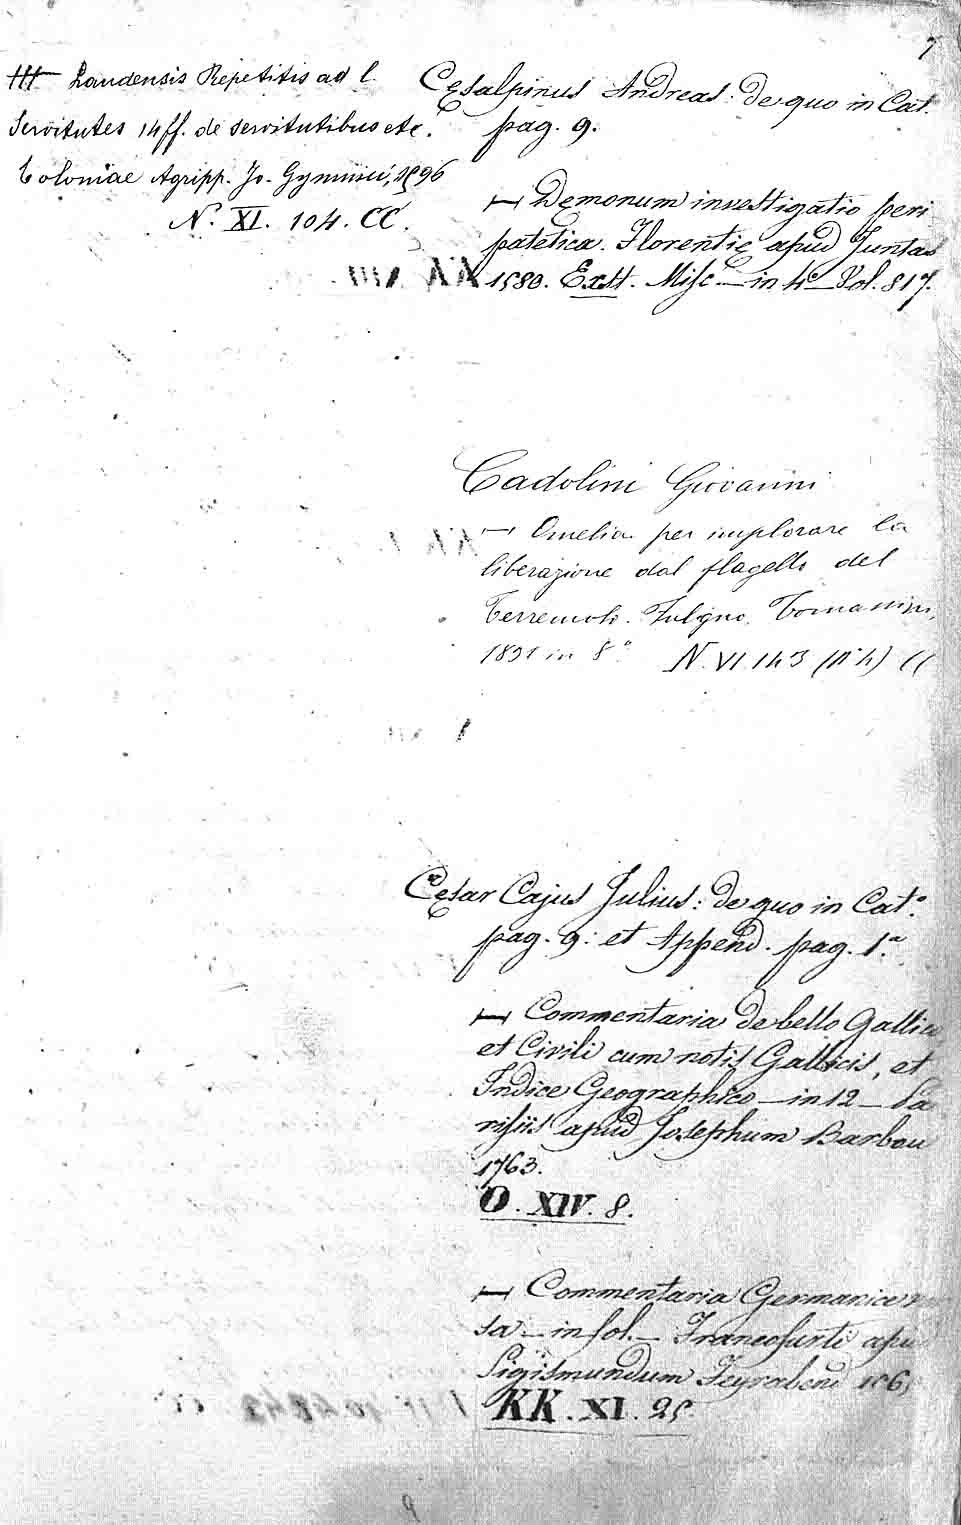 7
Laudensis Repetitis ad l.
Servitutes 14 ff. de servitutibus etc.
Coloniae Agripp. Jo. Gymnici, 1596
N. XI. 104. CC.
Cęsalpinus Andreas: de quo in Cat.
pag. 9.
— Dęmonum investigatio peri
patetica. Florentię apud Juntas
1580. Extt. Misc. — in 4.º — Vol. 817.
Cadolini Giovanni
— Omelia per implorare la
liberazione dal flagello del
Terremoto. Fuligno, Tomassini,
in 8.º N. VI. 143 (nº 4) CC
Cęsar Cajus Julius: de quo in Cat.º
pag. 9: et Append. pag. 1.ª
— Commentaria de bello Gallico
et Civili cum notis Gallicis, et
Indice Geographico — in 12 — Pa
risiis apud Josephum Barbou
1763.
O. XIV. 8.
— Commentaria Germanice
sa — in fol. — Francofurti apud
Sigismundum Feyrabend
KK. XI. 25.